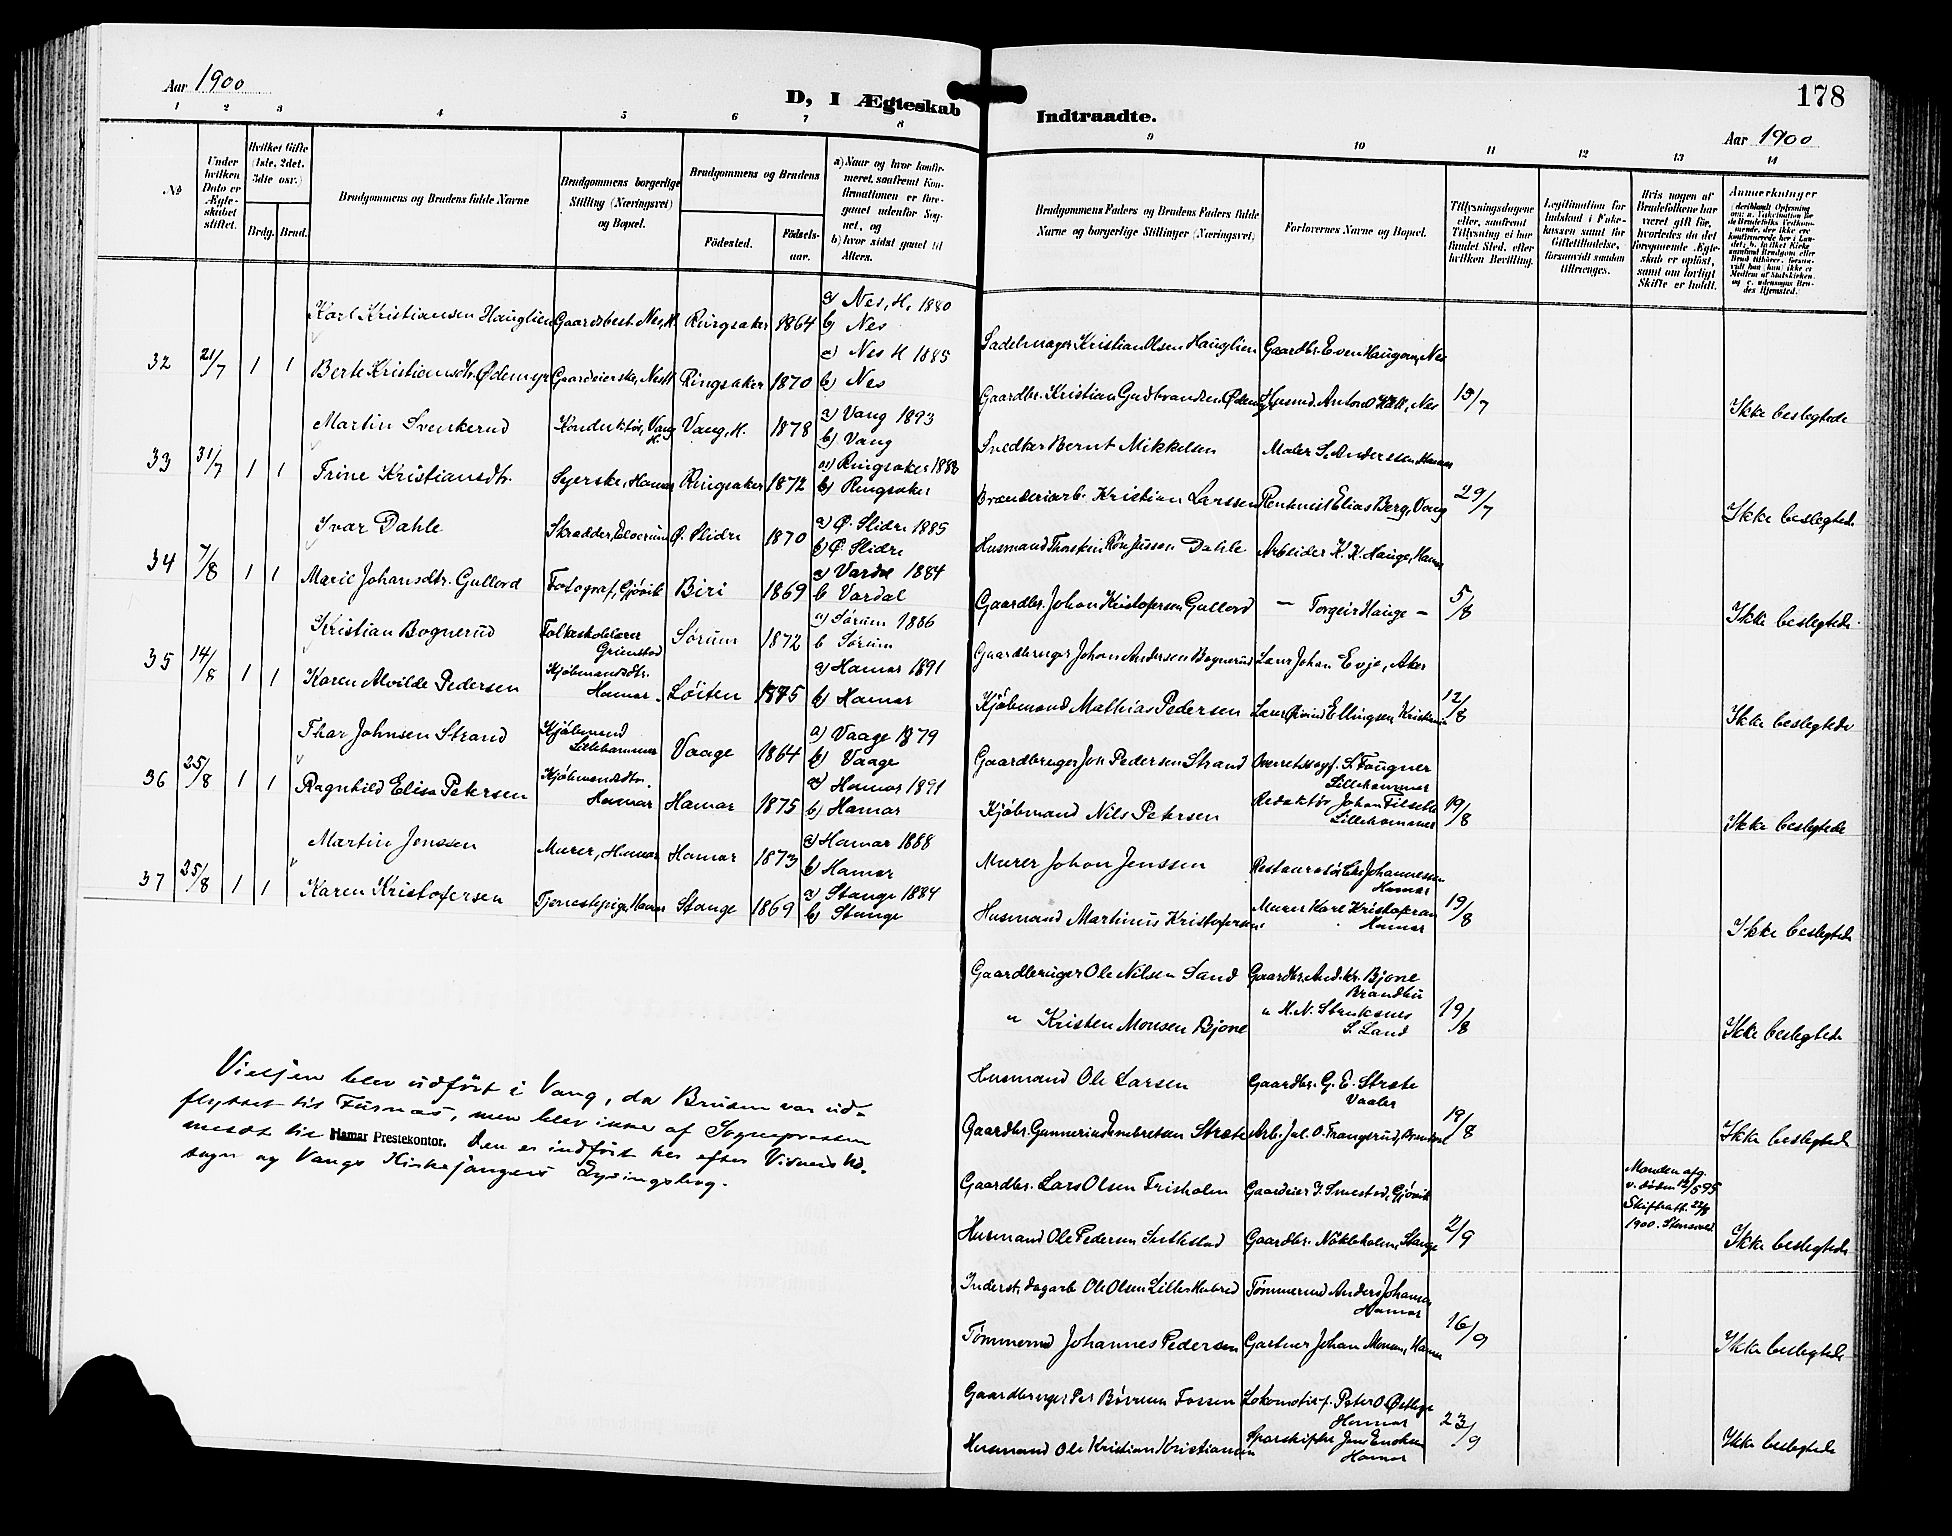 Aar 1900
D, I Ægteskab
Indtraadte.
178
Aar 1900
1 2 3 4 5 6 7 8 9 10 11 12 13 14
No
Under hvilken Dato er Ægteskabet stiftet.
Hvilket Gifte (1ste, 2det, 3die osv.)
Brdg. Brud.
Brudgommens og Brudens fulde Navne
Brudgommens borgerlige Stilling (Næringsvei) og Bopæl.
Brudgommens og Brudens
Födested.
Födsels-aar.
a) Naar og hvor konfirmeret, saafremt Konfirmationen er foregaaet udenfor Sognet, og
b) hvor sidst gaaet til Alters.
Brudgommens Faders og Brudens Faders fulde Navne og borgerlige Stillinger (Næringsvei)
Forlovernes Navne og Bopæl.
Tillysningsdagene eller, saafremt Tillysning ei har fundet Sted, efter hvilken Bevilling.
Legitimation for Indskud i Enkekassen samt for Giftetilladelse, forsaavidt saadan tiltrænges.
Hvis nogen af Brudefolkene har været gift før, hvorledes da det foregaaende Ægteskab er opløst, samt om lovligt Skifte er holdt.
Anmærkninger
Karl Kristiansen Hauglien Gaardbest. Nes, H. Ringsaker 1864 a) Nes, H. 1880
b) Nes
32 21/7 1 1 Berte Kristiansdtr. Ødemyr Gaardeierske, Nes H Ringsaker 1870 a) Nes H 1885
b) Nes
Martin Svenkerud Konduktör, Vang H. Vang, H. 1878 a) Vang 1893
b) Vang
33 31/7 1 1 Trine Kristiansdtr. Syerske, Hamar Ringsaker 1872 a) Ringsaker 1888
b) Ringsaker
Ivar Dahle Skrædder, Elverum Ø. Slidre 1870 a) Ø. Slidre 1885
b) Ø. Slidre
34 7/8 1 1 Marie Johansdtr. Gullord Fotograf, Gjövik Biri 1869 a) Vardal 1884
b Vardal
Kristian Bognerud Folkeskolelærer Grimstad Sörum 1872 a) Sörum 1886
b Sörum
35 14/8 1 1 Karen Alvilde Pedersen Kjöbmandsdtr. Hamar Löiten 1875 a) Hamar 1891
b) Hamar
Thor Johnsen Strand Kjöbmand Lillehammer Vaage 1864 a) Vaage 1879
b) Vaage
36 25/8 1 1 Ragnhild Elisa Petersen Kjöbmandsdtr. Hamar Hamar 1875 a) Hamar 1891
b) Hamar
Martin Jenssen Murer, Hamar Hamar 1873 a) Hamar 1888
b) Hamar
37 25/8 1 1 Karen Kristofersen Tjenestepige, Hamar Stange 1869 a) Stange 1884
b) Stange
Vielsen blev udfört i Vang, da Bruden var ud-
flyttet til Furnæs, men blev ikke af Sognepresten
meldt til Hamar Prestekontor. Den er indfört her efter
sogn og Vangs Kirkesangers Lysningsbog.
Sadelmager Kristian Olsen Hauglien Gaardbr. Even Haugom, Nes
Gaardbr. Kristian Gudbrandsen Ødemyr Husmd. Anton 15/7 Ikke beslegtede
Snedker Bernt Mikkelsen Maler S. Anderssen Hamar
Brænderiarb. Kristian Larssen Rentenist Elias Berg, Vang 29/7 Ikke beslegtede
Husmand Thorstein Dahle Arbeider K. K. Hauge, Hamar
Gaardbr. Johan Kristofersen Gullord — Torgeir Hauge — 5/8 Ikke beslegtede
Gaardbruger Johan Andersen Bognerud Lærer Johan Evje, Aker
Kjöbmand Mathias Pedersen Lærer Øivind Ellingsen Kristiania 12/8 Ikke beslegtede
Gaardbruger Jon Pedersen Strand Overretssagf. S. Fougner
Lillehammer
Kjöbmand Nils Petersen Redaktör Johan Filseth
Lillehammer 19/8 Ikke beslegtede
Murer Johan Jenssen Restauratör Johannessen
Hamar
Husmand Martinus Kristofersen Murer Karl Kristofersen
Hamar 19/8 Ikke beslegtede
Gaardbruger Ole Nilsen Sand Gaardbr. And. Kr. Bjone
Brandbu
" Kristen Monsen Bjone " H. N. Struksnes
S. Land 19/8 Ikke beslegtede
Husmand Ole Larsen Gaardbr. G. E. Stræte
Vaaler
Gaardbr. Gunnerius Embretsen Stræte Arb. Jul. O. Frangerud, 19/8 Ikke beslegtede
Gaardbr. Lars Olsen Frisholen Gaardeier J. Smestad, Gjövik
Manden afg. v. döden 12/5 95
Skifteatt. 22/8
1900. Stensvold
Husmand Ole Pedersen Gaardbr. Nökleholm, Stange 2/9 Ikke beslegtede
Inderst, dagarb Ole Olsen Lilles Tömmermd Anders Johansen
Hamar
Tömmermd Johannes Pedersen Gartner Johan Monsen, Hamar 16/9 Ikke beslegtede
Gaardbruger Per Fossen Lokomotivf. Peter O. Østbye
Hamar
Husmand Ole Kristian Kristiansen Jens
Hamar 23/9 Ikke beslegtede